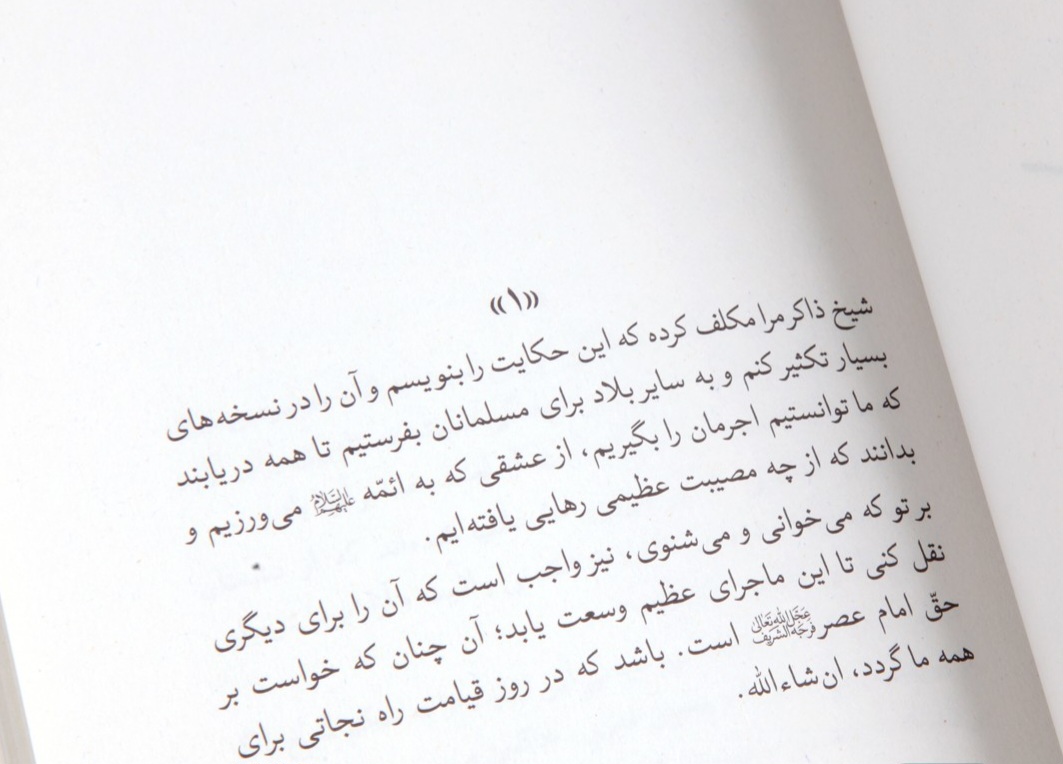 «۱»
شیخ ذاکر مرا مکلف کرده که این حکایت را بنویسم و آن را در نسخه‌های
بسیار تکثیر کنم و به سایر بلاد برای مسلمانان بفرستیم تا همه دریابند
که ما توانستیم اجرمان را بگیریم، از عشقی که به ائمّه علیهم‌السلام می‌ورزیم و
بدانند که از چه مصیبت عظیمی رهایی یافته‌ایم.
بر تو که می‌خوانی و می‌شنوی، نیز واجب است که آن را برای دیگری
نقل کنی تا این ماجرای عظیم وسعت یابد؛ آن چنان که خواست بر
حقّ امام عصر عجّل‌الله‌تعالی فرجه‌الشریف است. باشد که در روز قیامت راه نجاتی برای
همه ما گردد، ان‌شاءالله.